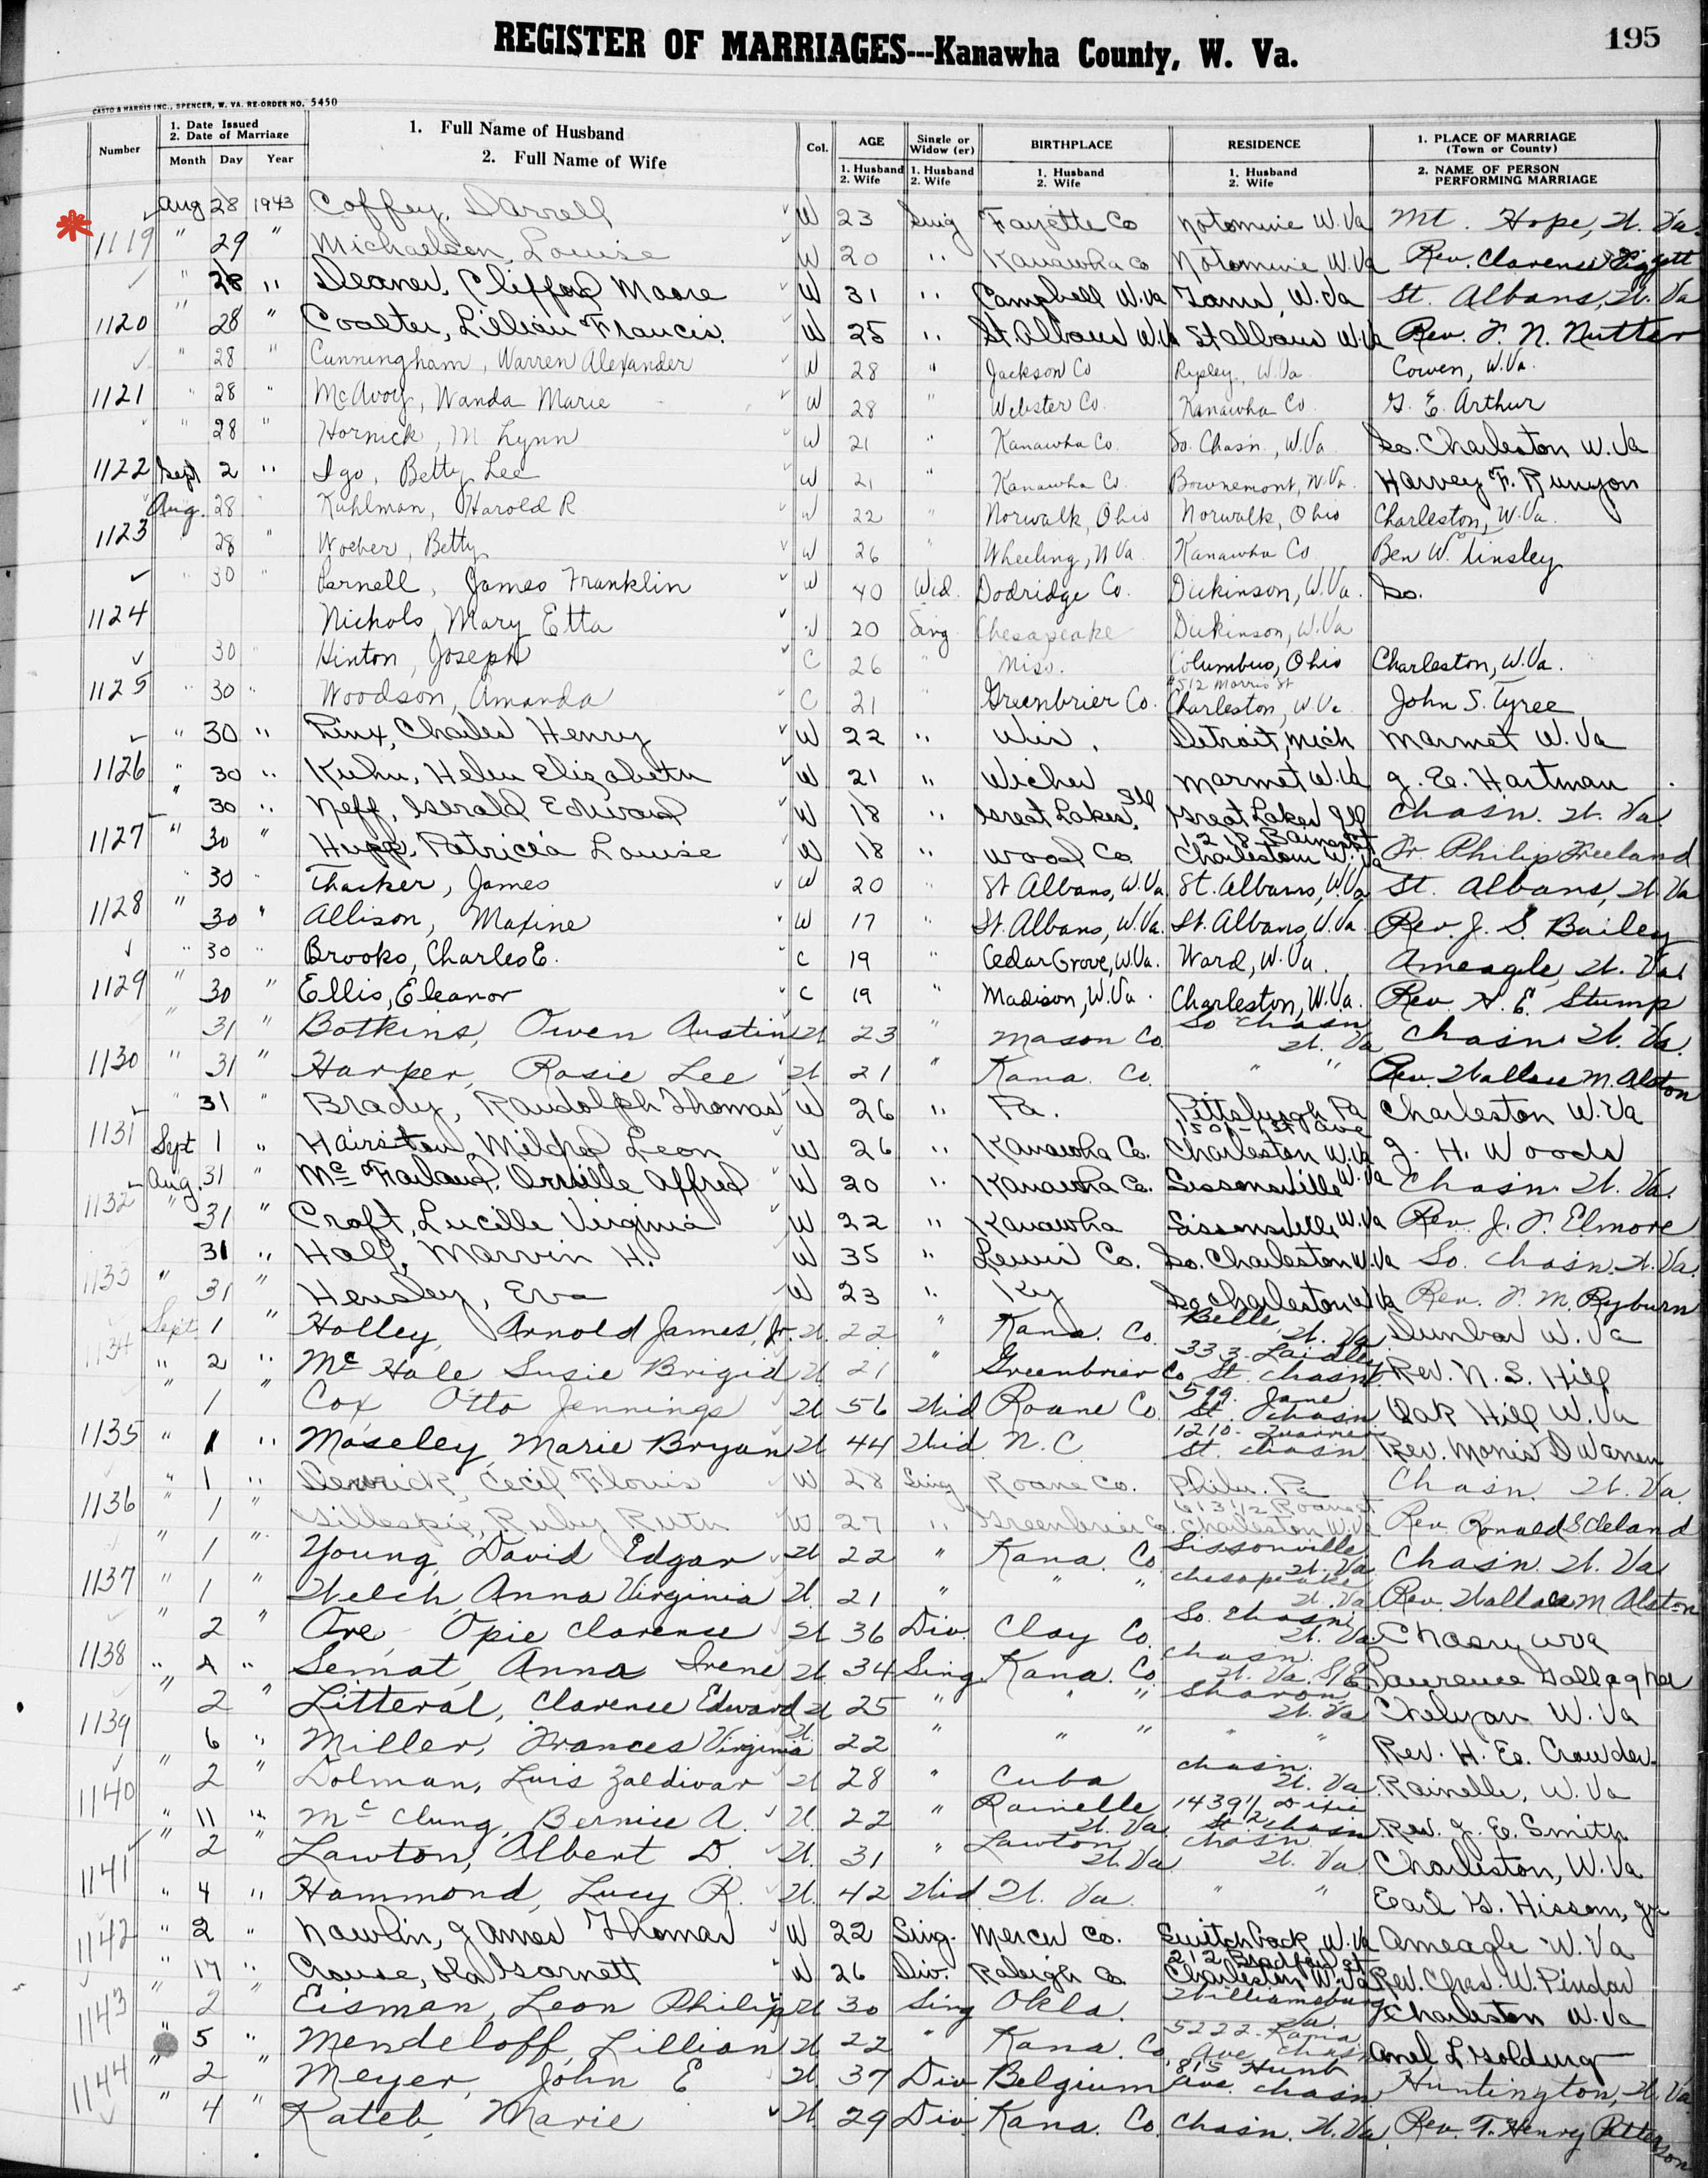 195
REGISTER OF MARRIAGES---Kanawha County, W. Va.
CASTO & HARRIS INC., SPENCER, W. VA. RE-ORDER NO. 5450
Number 1. Date Issued 2. Date of Marriage Month Day Year 1. Full Name of Husband 2. Full Name of Wife Col. AGE 1. Husband 2. Wife Single or Widow (er) 1. Husband 2. Wife BIRTHPLACE 1. Husband 2. Wife RESIDENCE 1. Husband 2. Wife 1. PLACE OF MARRIAGE (Town or County) 2. NAME OF PERSON PERFORMING MARRIAGE
Aug 28 1943 Coffey, Darrell W 23 Sing Fayette Co W.Va Mt. Hope, W. Va.
1119 " 29 " Louise W 20 " Kanawha Co W.Va Rev. Clarence
" 28 " Clifford Moore W 31 " Campbell W.Va W.Va St. Albans, W. Va
1120 " 28 " Coalter, Lillian Francis W 25 " St. Albans W.Va St Albans W.Va Rev. N. Nutter
" 28 " Cunningham, Warren Alexander W 28 " Jackson Co Ripley, W.Va Cowen, W.Va.
1121 " 28 " McAvoy, Wanda Marie W 28 " Webster Co. Kanawha Co. G. E. Arthur
" 28 " Hornick, M Lynn W 21 " Kanawha Co. So. Chasn., W.Va So. Charleston W.Va
1122 Sept 2 " Igo, Betty Lee W 21 " Kanawha Co. W.Va. Harvey F. Runyon
Aug. 28 " Kuhlman, Harold R W 22 " Norwalk, Ohio Norwalk, Ohio Charleston, W.Va.
1123 28 " Woeber, Betty W 26 " Wheeling, W Va Kanawha Co. Ben W. Tinsley
" 30 " Parnell, James Franklin W 40 Wid. Dodridge Co. Dickinson, W.Va. Do.
1124 Nichols, Mary Etta W 20 Sing Chesapeake Dickinson, W.Va
30 " Hinton, Joseph C 26 " Miss. Columbus, Ohio Charleston, W.Va.
1125 " 30 " Woodson, Amanda C 21 " Greenbrier Co. 512 Morris St Charleston, W.Va John S. Tyree
" 30 " Charles Henry W 22 " Detroit, Mich Marmet W.Va
1126 " 30 " Kuhn, Helen Elizabeth W 21 " Marmet W.Va J. E. Hartman
" 30 " Neff, Gerald Edward W 18 " Great Lakes, Ill Great Lakes Ill Chasn. W. Va.
1127 " 30 " Patricia Louise W 18 " Wood Co Charleston W.Va Fr. Philip Freeland
" 30 " Thacker, James W 20 " St Albans, W.Va. St. Albans, W.Va. St. Albans, W. Va
1128 " 30 " Allison, Maxine W 17 " St. Albans, W.Va. St. Albans, W.Va. Rev. J. S. Bailey
" 30 " Brooks, Charles E. C 19 " Cedar Grove, W.Va. Ward, W.Va. Ameagle, W. Va
1129 " 30 " Ellis, Eleanor C 19 " Madison, W.Va. Charleston, W.Va. Rev. H. E. Stump
" 31 " Botkins, Owen Austin W 23 " Mason Co. So Chasn W. Va Chasn. W. Va.
1130 " 31 " Harper, Rosie Lee W 21 " Kana. Co. " " Rev. Wallace M. Alston
" 31 " Brady, Randolph Thomas W 26 " Pa. Pittsburgh Pa Charleston W.Va
1131 Sept 1 " Hairston, Mildred Leon W 26 " Kanawha Co. Charleston W.Va J. H. Woods
Aug. 31 " Orville Alfred W 20 " Kanawha Co. Sissonville W.Va Chasn. W. Va.
1132 " 31 " Craft, Lucille Virginia W 22 " Kanawha Sissonville W.Va Rev. J. F. Elmore
31 " Hall, Marvin H. W 35 " Lewis Co. So. Charleston W.Va So. Chasn. W.Va.
1133 " 31 " Hensley, Eva W 23 " Ky So. Charleston W.Va Rev. M. Ryburn
Sept 1 " Holley, Arnold James, Jr. W. 22 " Kana. Co. Belle W. Va. Dunbar W. Va
1134 " 2 " McHale Susie Brigid W. 21 " Greenbrier Co 333 Laidley St. Chasn Rev. N. S. Hill
" 1 " Cox Otto Jennings W 56 Wid Roane Co. 599 Jane St. Chasn. Oak Hill W. Va
1135 " 1 " Moseley Marie Bryan W 44 Wid N. C 1210 Quarrier St. Chasn
" 1 " Cecil W 28 Sing Roane Co. Phila. Pa Chasn. W. Va.
1136 " 1 " Gillespie, Ruby Ruth W 27 " Greenbrier Co. 613 1/2 Roane St Charleston W.Va Rev. Ronald S Cleland
" 1 " Young, David Edgar W 22 " Kana. Co. Sissonville W. Va Chasn. W. Va
1137 " 1 " Welch, Anna Virginia W. 21 " " " Chesapeake W. Va Rev. Wallace M Alston
" 2 " Ore, Opie Clarence W 36 Div. Clay Co. So. Chasn. W. Va. Chasn W Va
1138 " " Semat, Anna Irene W. 34 Sing. Kana. Co. Chasn. W. Va. Laurence Gallagher
" 2 " Litteral, Clarence Edward W 25 " " " Sharon, W. Va Chelyan W. Va
1139 6 " Miller, Frances Virginia W. 22 " " " " " Rev. H. E. Crowder.
" 2 " Dolman, Luis Zaldivar W 28 " Cuba Chasn. W. Va Rainelle, W. Va
1140 " 11 " McClung, Bernice A. W. 22 " Rainelle W. Va 1439 1/2 Dixie St. Chasn Rev. J. E. Smith
" 2 Lawton, Albert D. W. 31 " Lawton W. Va Chasn. W. Va Charleston, W. Va
1141 " 4 " Hammond, Lucy R. W. 42 Wid W. Va. " " Earl G. Hissom, Jr
" 2 " Nowlin, James Thomas W 22 Sing. Mercer Co. Switchback W. Va Ameagle W. Va
1142 " 17 " Crouse, Ola Garnett W 26 Div. Raleigh Co 212 Bradford St Charleston W. Va Rev. Chas. W. Pindar
" 2 Eisman, Leon Philip W 30 Sing Okla. Williamsburg Va. Charleston W. Va
1143 " 5 " Mendeloff, Lillian W 22 " Kana. Co. Kana Ave Chasn
" 2 " Meyer, John E W 37 Div Belgium 815 Hunt Ave. Chasn. Huntington, W. Va
1144 " 4 " Kateb, Marie W 29 Div. Kana. Co. Chasn. W. Va. Rev. T. Henry Patterson